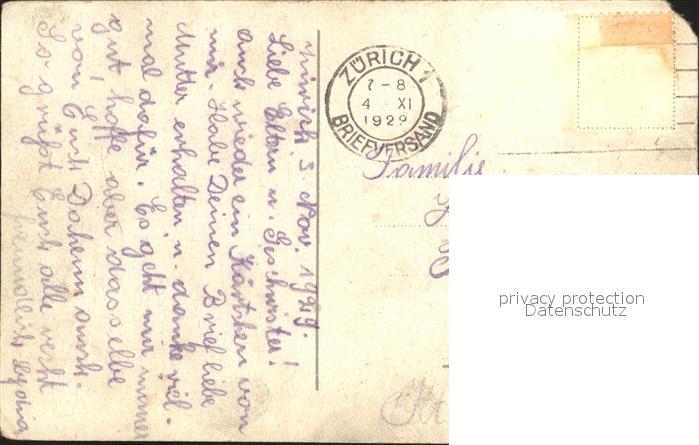 Zürich 3. Nov. 1929.
Liebe Eltern u. Geschwister!
auch wieder ein Kärtchen von
mir. Habe Deinen Brief liebe
Mutter erhalten u. danke viel-
mal dafür. Es geht mir immer
gut, hoffe aber dasselbe
von Euch Daheim auch.
So grüßt Euch alle recht
freundlich Lydia
ZÜRICH 1
7-8
4. XI
1929
BRIEFVERSAND
Familie
privacy protection
Datenschutz